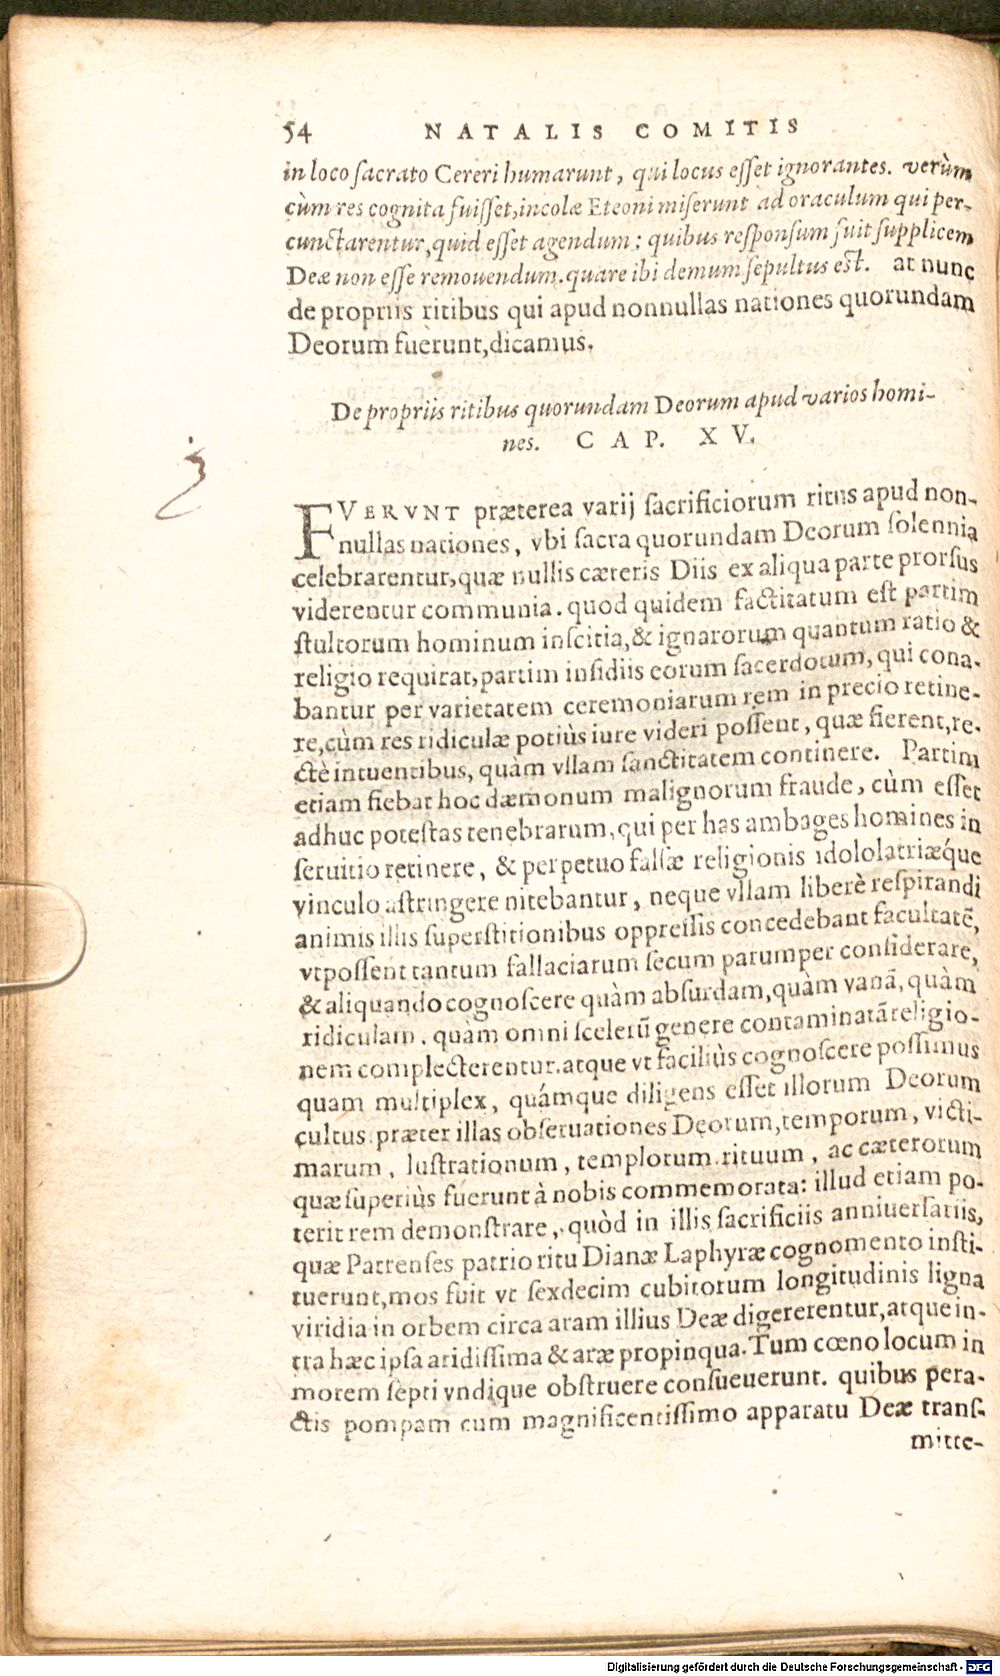 54 NATALIS COMITIS
in loco sacrato Cereri humarunt, qui locus esset ignorantes. verùm
cùm res cognita fuisset, incolæ Eteoni miserunt ad oraculum qui per-
cunctarentur, quid esset agendum: quibus responsum fuit supplicem
Deæ non esse remouendum. quare ibi demum sepultus est. at nunc
de propriis ritibus qui apud nonnullas nationes quorundam
Deorum fuerunt, dicamus.
De propriis ritibus quorundam Deorum apud varios homi-
nes. CAP. XV.
FVERVNT præterea varij sacrificiorum ritus apud non-
nullas nationes, vbi sacra quorundam Deorum solennia
celebrarentur, quæ nullis cæteris Diis ex aliqua parte prorsus
viderentur communia. quod quidem factitatum est partim
stultorum hominum inscitia, & ignarorum quantum ratio &
religio requirat, partim insidiis eorum sacerdotum, qui cona-
bantur per varietatem ceremoniarum rem in precio retine-
re, cùm res ridiculæ potiùs iure videri possent, quæ fierent, re-
ctè intuentibus, quàm vllam sanctitatem continere. Partim
etiam fiebat hoc dæmonum malignorum fraude, cùm esset
adhuc potestas tenebrarum, qui per has ambages homines in
seruitio retinere, & perpetuo falsæ religionis idololatriæq́ue
vinculo astringere nitebantur, neque vllam liberè respirandi
animis illis superstitionibus oppressis concedebant facultatẽ,
vt possent tantum fallaciarum secum parumper considerare,
& aliquando cognoscere quàm absurdam, quàm vanã, quàm
ridiculam. quàm omni scelerũ genere contaminatã religio-
nem complecterentur. atque vt faciliùs cognoscere possimus
quam multiplex, quámque diligens esset illorum Deorum
cultus præter illas obseruationes Deorum, temporum, victi-
marum, lustrationum, templorum. rituum, ac cæterorum
quæ superiùs fuerunt à nobis commemorata: illud etiam po-
terit rem demonstrare, quòd in illis sacrificiis anniuersariis,
quæ Patrenses patrio ritu Dianæ Laphyræ cognomento insti-
tuerunt, mos fuit vt sexdecim cubitorum longitudinis ligna
viridia in orbem circa aram illius Deæ digererentur, atque in-
tra hæc ipsa aridissima & aræ propinqua. Tum cœno locum in
morem septi vndique obstruere consueuerunt. quibus pera-
ctis pompam cum magnificentissimo apparatu Deæ trans-
mitte-
Digitalisierung gefördert durch die Deutsche Forschungsgemeinschaft - DFG